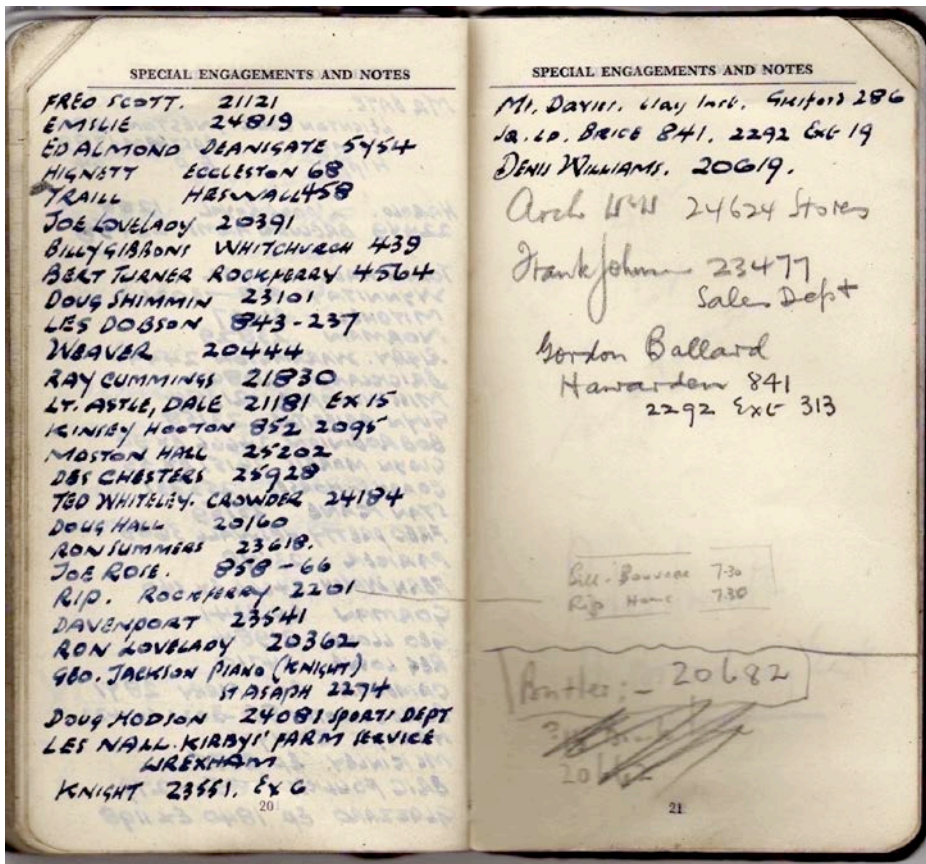 SPECIAL ENGAGEMENTS AND NOTES
FRED SCOTT. 21121
EMSLIE 24819
ED ALMOND DEANSGATE 5454
HIGNETT ECCLESTON 68
TRAILL HESWALL 458
JOE LOVELADY 20391
BILLY GIBBONS WHITCHURCH 439
BERT TURNER ROCKFERRY 4564
DOUG SHIMMIN 23101
LES DOBSON 843-237
WEAVER 20444
RAY CUMMINGS 21830
LT. ASTLE, DALE 21181 EX 15
KINSEY HOOTON 852 2095
MOSTON HALL 25202
DES CHESTERS 25928
TED WHITELEY. CROWDER 24184
DOUG HALL 20160
RON SUMMERS 23618.
JOE ROSE. 858-66
RIP. ROCKFERRY 2201
DAVENPORT 23541
RON LOVELADY 20362
GEO. JACKSON PIANO (KNIGHT)
ST ASAPH 2274
DOUG HODSON 24081 SPORTS DEPT
LES NALL. KIRBYS' FARM SERVICE
WREXHAM
KNIGHT 23551, EX 6
20
SPECIAL ENGAGEMENTS AND NOTES
Mr. Davies. 286
BRICE 841. 2292 Ext 19
DENIS WILLIAMS. 20619.
Arch 24624 Stores
Frank Johnson 23477
Sales Dept
Gordon Ballard
Hawarden 841
2292 Ext 313
Bill 7.30
Rip Home 7.30
Butler:- 20682
21